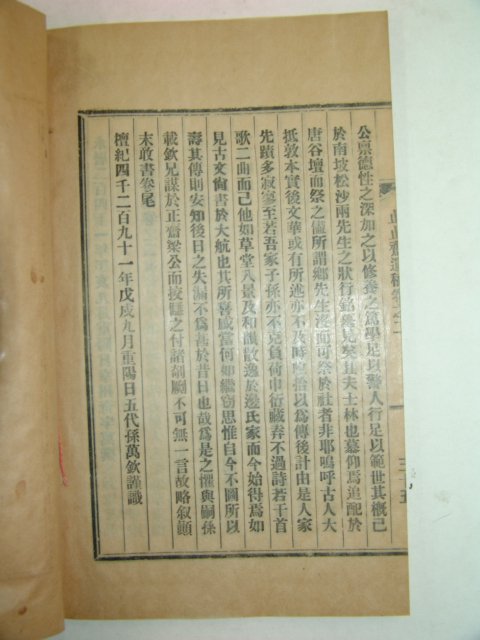 公禀德性之深加之以修養之篤學足以警人行足以範世其概已
於南坡松沙兩先生之狀行銘墓見矣且夫士林也慕仰焉追配於
唐谷壇而祭之儘所謂鄉先生沒而可祭於社者非耶嗚呼古人大
抵敦本實後文華或有所述亦不及時收拾以爲傳後計由是人家
先蹟多寂寥至若吾家子孫亦不克負荷巾衍藏弆不過詩若干首
歌二曲而已他如草堂八景及和讖散逸於邊氏家而今始得焉如
見古文尙書於大航也其所喜感當何如繼竊思惟自今不圖所以
壽其傳則安知後日之失漏不爲舊於昔日也哉爲是之懼與嗣孫
載欽兄謀於正齋梁公而按騐之付諸剞劂不可無一言故略叙顚
末敢書卷尾
檀紀四千二百九十一年戊戌九月重陽日五代孫萬欽謹識
止止齋遺稿卷之二
三十五